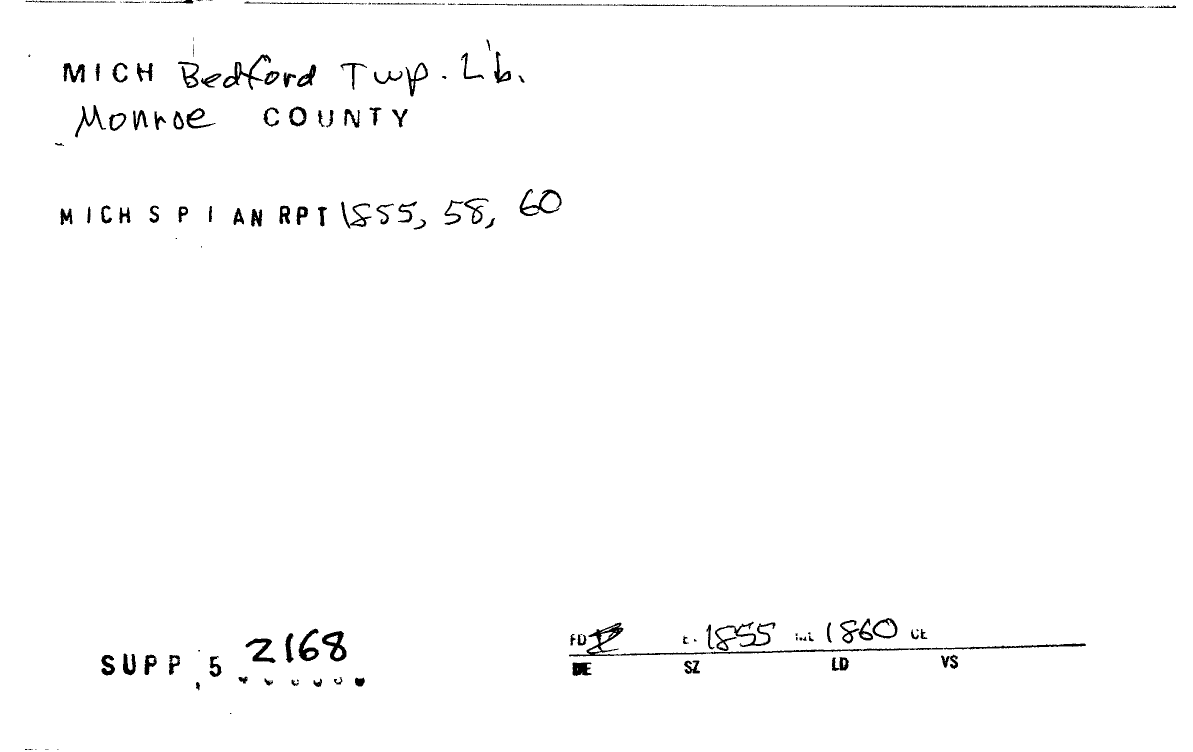 MICH Bedford Twp. Lib.
Monroe COUNTY
MICH S P I AN RPT 1855, 58, 60
SUPP 5 2168
FD 1855 1860
DE SZ LD VS